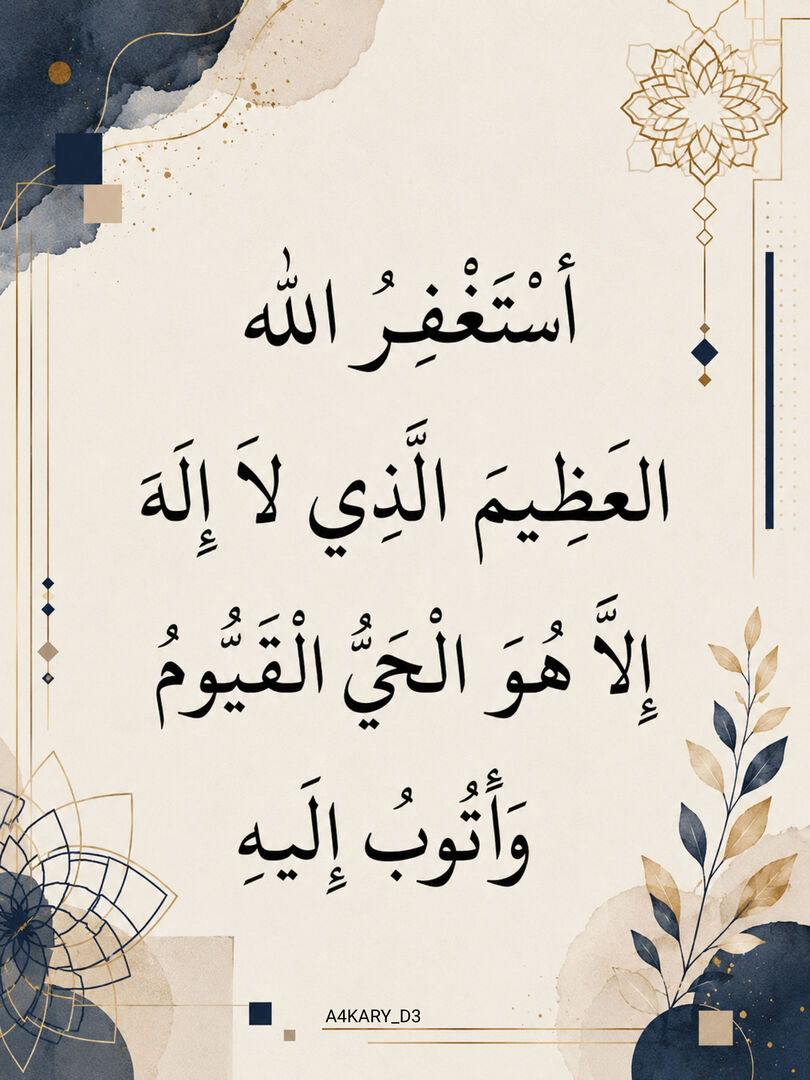 أسْتَغْفِرُ الله
العَظِيمَ الَّذِي لاَ إِلَهَ
إِلاَّ هُوَ الْحَيُّ الْقَيُّومُ
وَأَتُوبُ إِلَيهِ
A4KARY_D3